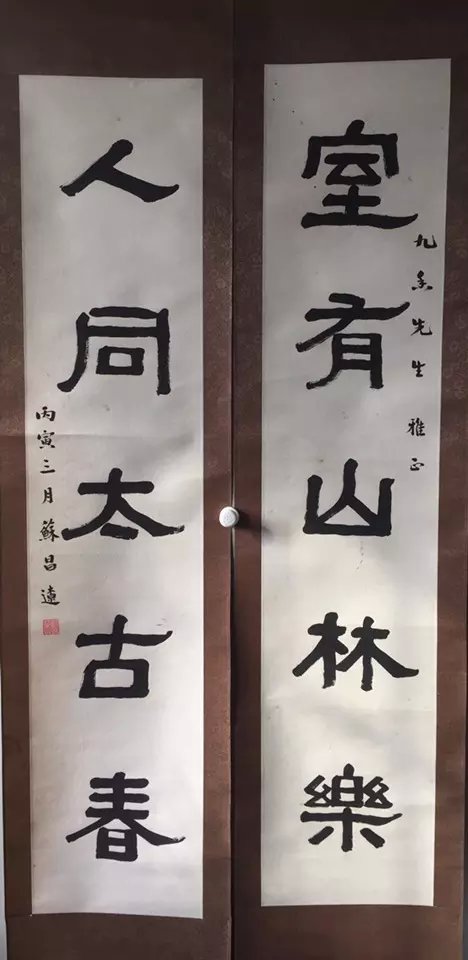 室有山林樂
九香先生雅正
人同太古春
丙寅三月蘇昌遠